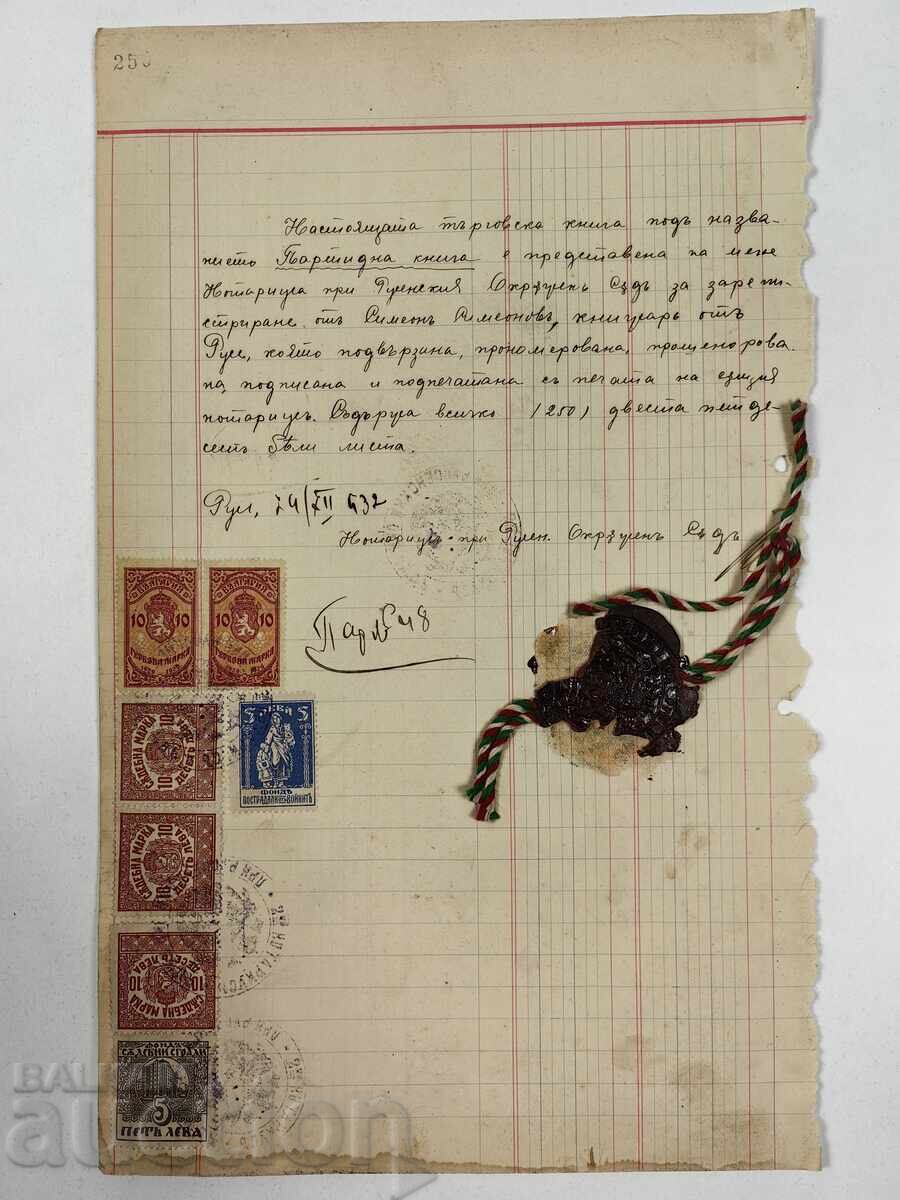 250
Настоящата търговска книга подъ назва-
нието Партидна книга е представена на мене
Нотариуса при Русенския Окрѫженъ Сѫдъ за зареги-
стриране отъ Симеонъ Симеоновъ, книжарь отъ
Русе, която подвързана, прономерована, прошнорова-
на, подписана и подпечатана съ печата на сѫщия
нотариусъ. Съдържа всичко /250/ двеста петде-
сеть бѣли листа.
Русе, 932
Нотариусъ: при Русен. Окрѫженъ Сѫдъ
Пар № 48
БЪЛГАРИЯ
10 10
ГЕРБОВА МАРКА
БЪЛГАРИЯ
10 10
ГЕРБОВА МАРКА
СѪДЕБНА МАРКА
10 10
ДЕСЕТЬ ЛЕВА
5 ЛЕВА 5
ФОНДЪ
ПОСТРАДАЛИ ОТЪ ВОЙНИТѢ
СѪДЕБНА МАРКА
10 10
ДЕСЕТЬ ЛЕВА
СѪДЕБНА МАРКА
10 10
ДЕСЕТЬ ЛЕВА
ФОНДЪ
СѪДЕБНИ СГРАДИ
5
ПЕТЬ ЛЕВА
auction